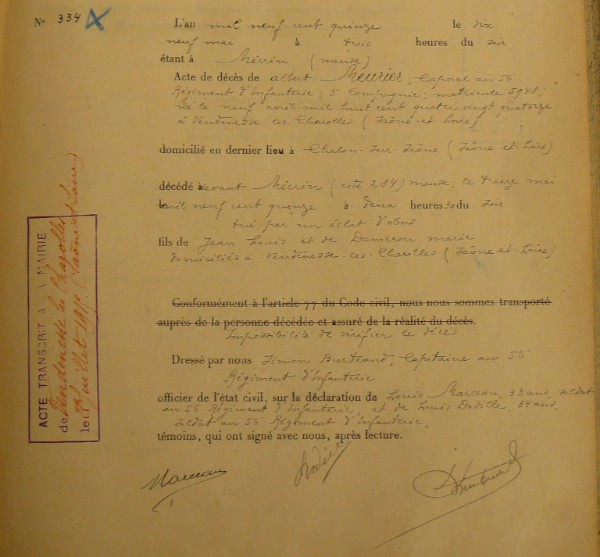 N° 334
L'an mil neuf cent quinze le dix
neuf mai à trois heures du soir
étant à Mécrin (meuse)
Acte de décès de albert Meurier, Caporal au 56
Régiment d'Infanterie, 3 Compagnie, matricule
né le neuf avril mil huit cent quatre vingt quatorze
à Vendenesse-les-Charolles (Saône-et-Loire)
domicilié en dernier lieu à Chalon-sur-Saône (Saône et Loire)
décédé à devant Mécrin (côte 284) meuse, le treize mai
mil neuf cent quinze à deux heures du soir
tué par un éclat d'obus
fils de Jean Louis et de marie
domiciliés à Vendenesse-les-Charolles (Saône-et-Loire)
Conformément à l'article 77 du Code civil, nous nous sommes transporté
auprès de la personne décédée et assuré de la réalité du décès.
Impossibilité de vérifier le décès
Dressé par nous Simon Burteaud, Capitaine au 56
Régiment d'Infanterie
officier de l'état civil, sur la déclaration de Louis Marceau, 33 ans, soldat
au 56 Régiment d'Infanterie, et de Louis Dodille, 34 ans,
soldat au 56 Régiment d'Infanterie,
témoins, qui ont signé avec nous, après lecture.
Marceau
ACTE TRANSCRIT A LA MAIRIE
de Vendenesse les Charolles (Saône et Loire)
le juillet 1915